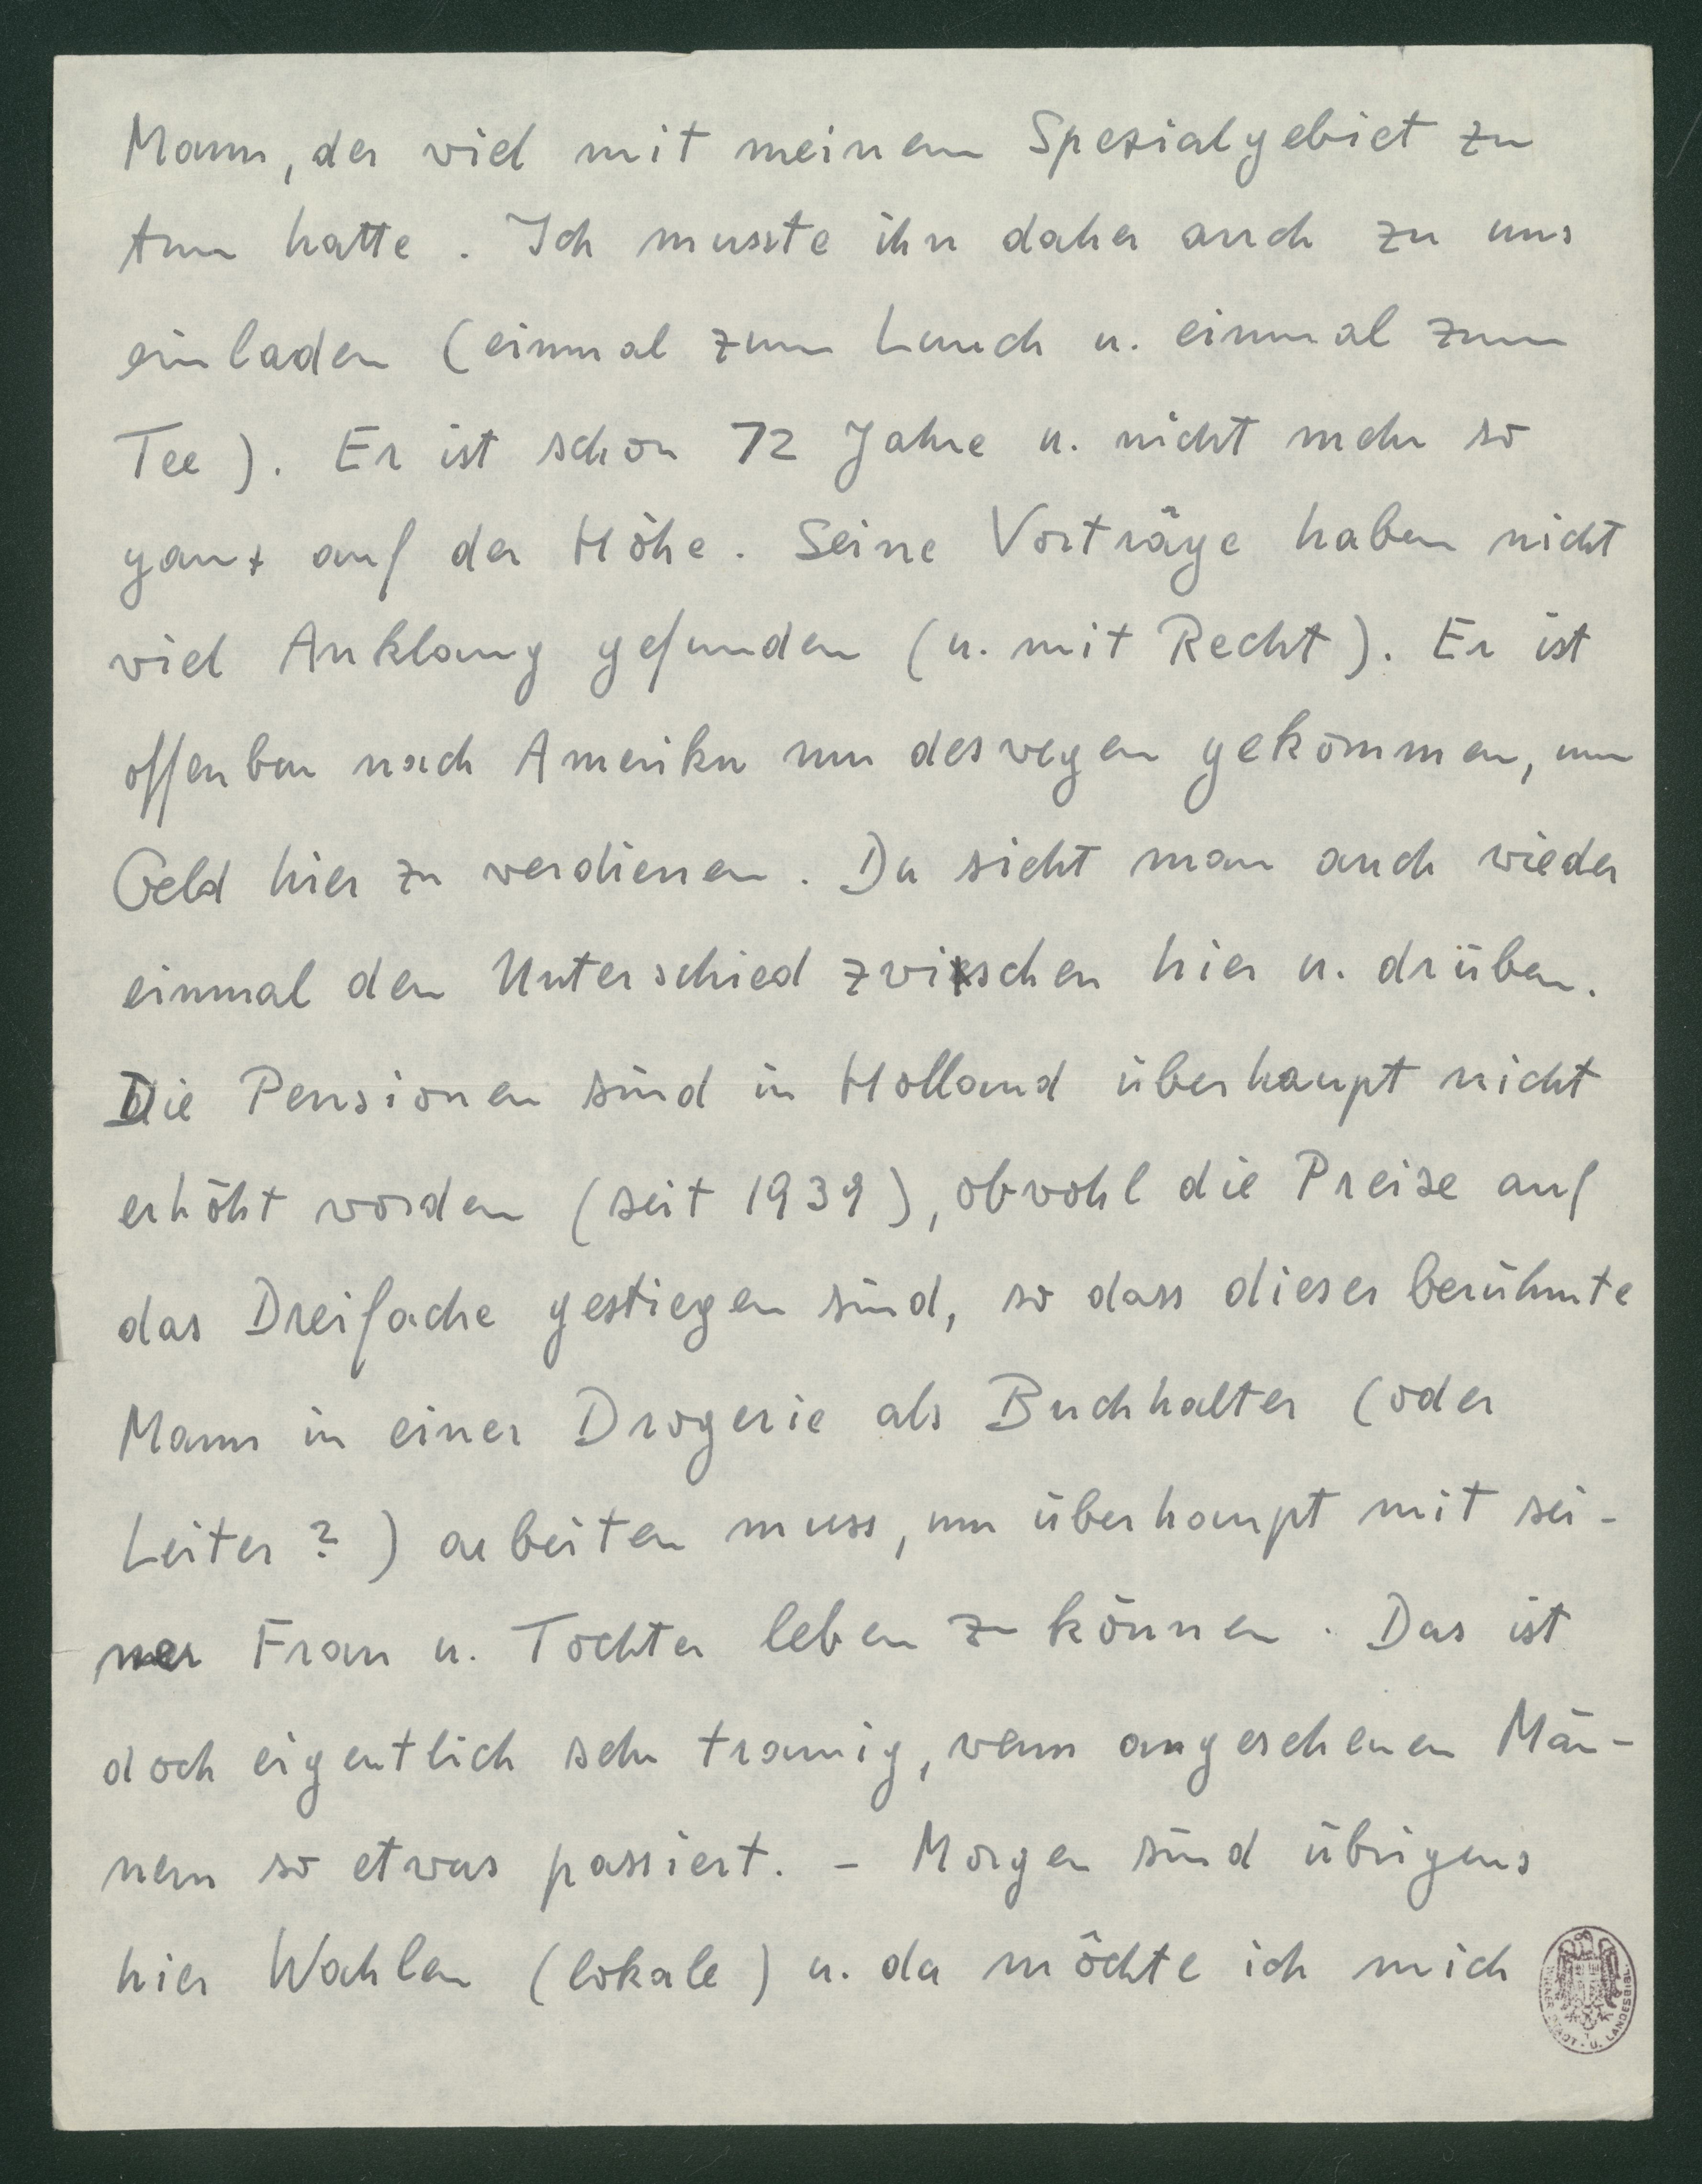 Mann, der viel mit meinem Spezialgebiet zu
tun hatte. Ich musste ihn daher auch zu uns
einladen (einmal zum Lunch u. einmal zum
Tee). Er ist schon 72 Jahre u. nicht mehr so
ganz auf der Höhe. Seine Vorträge haben nicht
viel Anklang gefunden (u. mit Recht). Er ist
offenbar nach Amerika nur deswegen gekommen, um
Geld hier zu verdienen. Da sieht man auch wieder
einmal den Unterschied zwischen hier u. drüben.
Die Pensionen sind in Holland überhaupt nicht
erhöht worden (seit 1939), obwohl die Preise auf
das Dreifache gestiegen sind, so dass dieser berühmte
Mann in einer Drogerie als Buchhalter (oder
Leiter?) arbeiten muss, um überhaupt mit sei-
ner Frau u. Tochter leben zu können. Das ist
doch eigentlich sehr traurig, wenn angesehenen Män-
nern so etwas passiert. – Morgen sind übrigens
hier Wahlen (lokale) u. da möchte ich mich
STADT- U. LANDESBIBL.